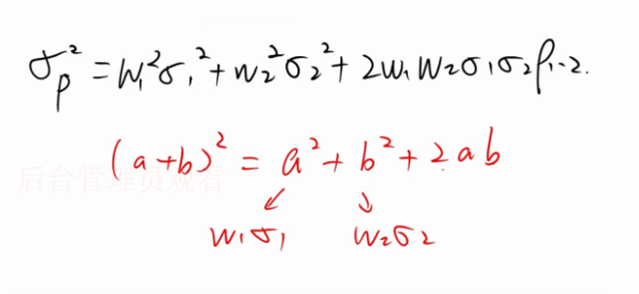 σₚ² = w₁²σ₁² + w₂²σ₂² + 2w₁w₂σ₁σ₂ρ₁.₂.
(a+b)² = a² + b² + 2ab
后台管理员观看
↙ ↘
w₁σ₁ w₂σ₂